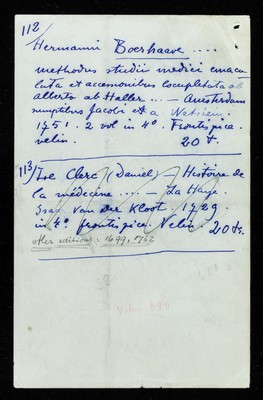 112
Hermanni Boerhaave ....
methodus studii medici emacu
lata et accessionibus locupletata ab
alberto ab Haller ... — Amsterdam
sumptibus Jacobi et a Wetstein.
1751. 2 vol in 4°. Frontispice.
velin. 20 fr.
113) Le Clerc (Daniel) — Histoire de
la médecine .... — La Haye.
Isaac Van der Kloot. 1729.
in 4° frontispice. Velin. 20 fr.
other editions: 1699, 1702